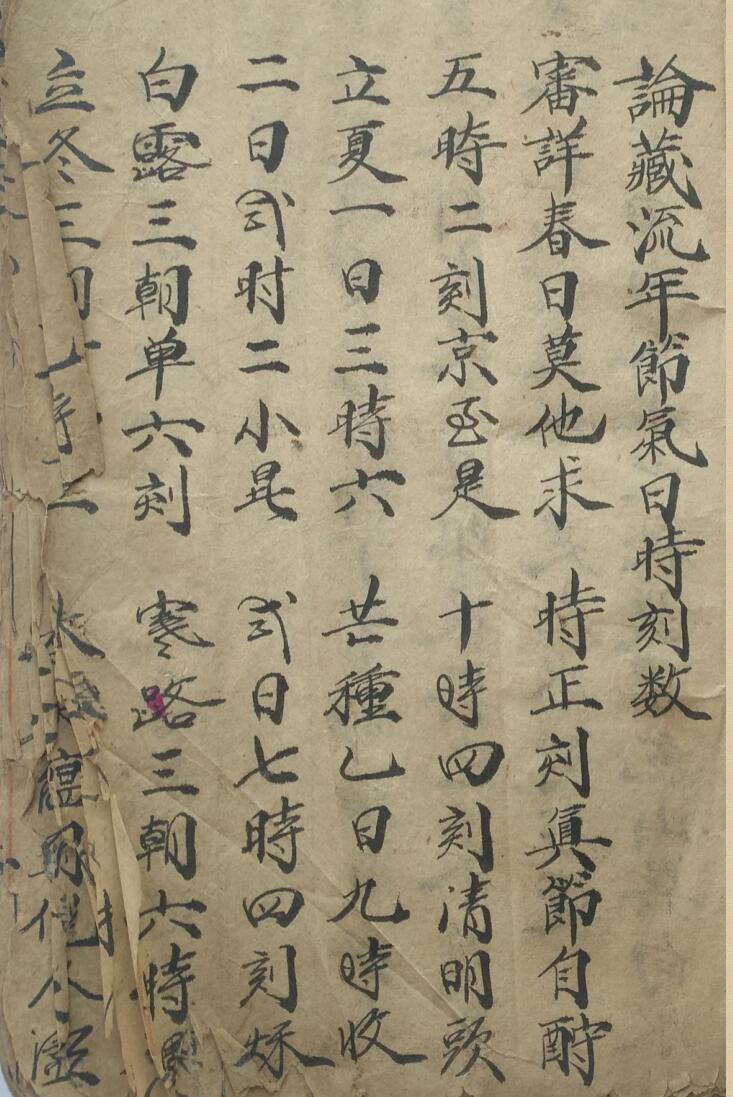 論藏流年節氣日時刻数
審詳春日莫他求 時正刻眞節自酧
五時二刻京至是 十時四刻清明頭
立夏一日三時六 芒種乙日九時收
二日弍时二小是 弍日七時四刻烌
白露三朝单六刻 寒路三朝六時
立冬三